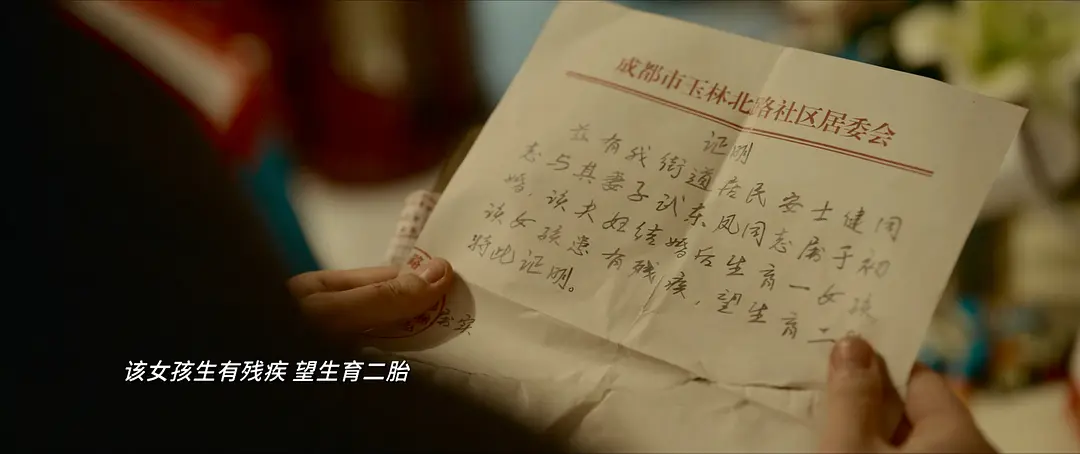 成都市玉林北路社区居委会
证明
兹有我街道居民安士健同
志与其妻子武东凤同志属于初
婚，该夫妇结婚后生育一女孩
该女孩患有残疾，望生育二
特此证明。
属实
该女孩生有残疾 望生育二胎